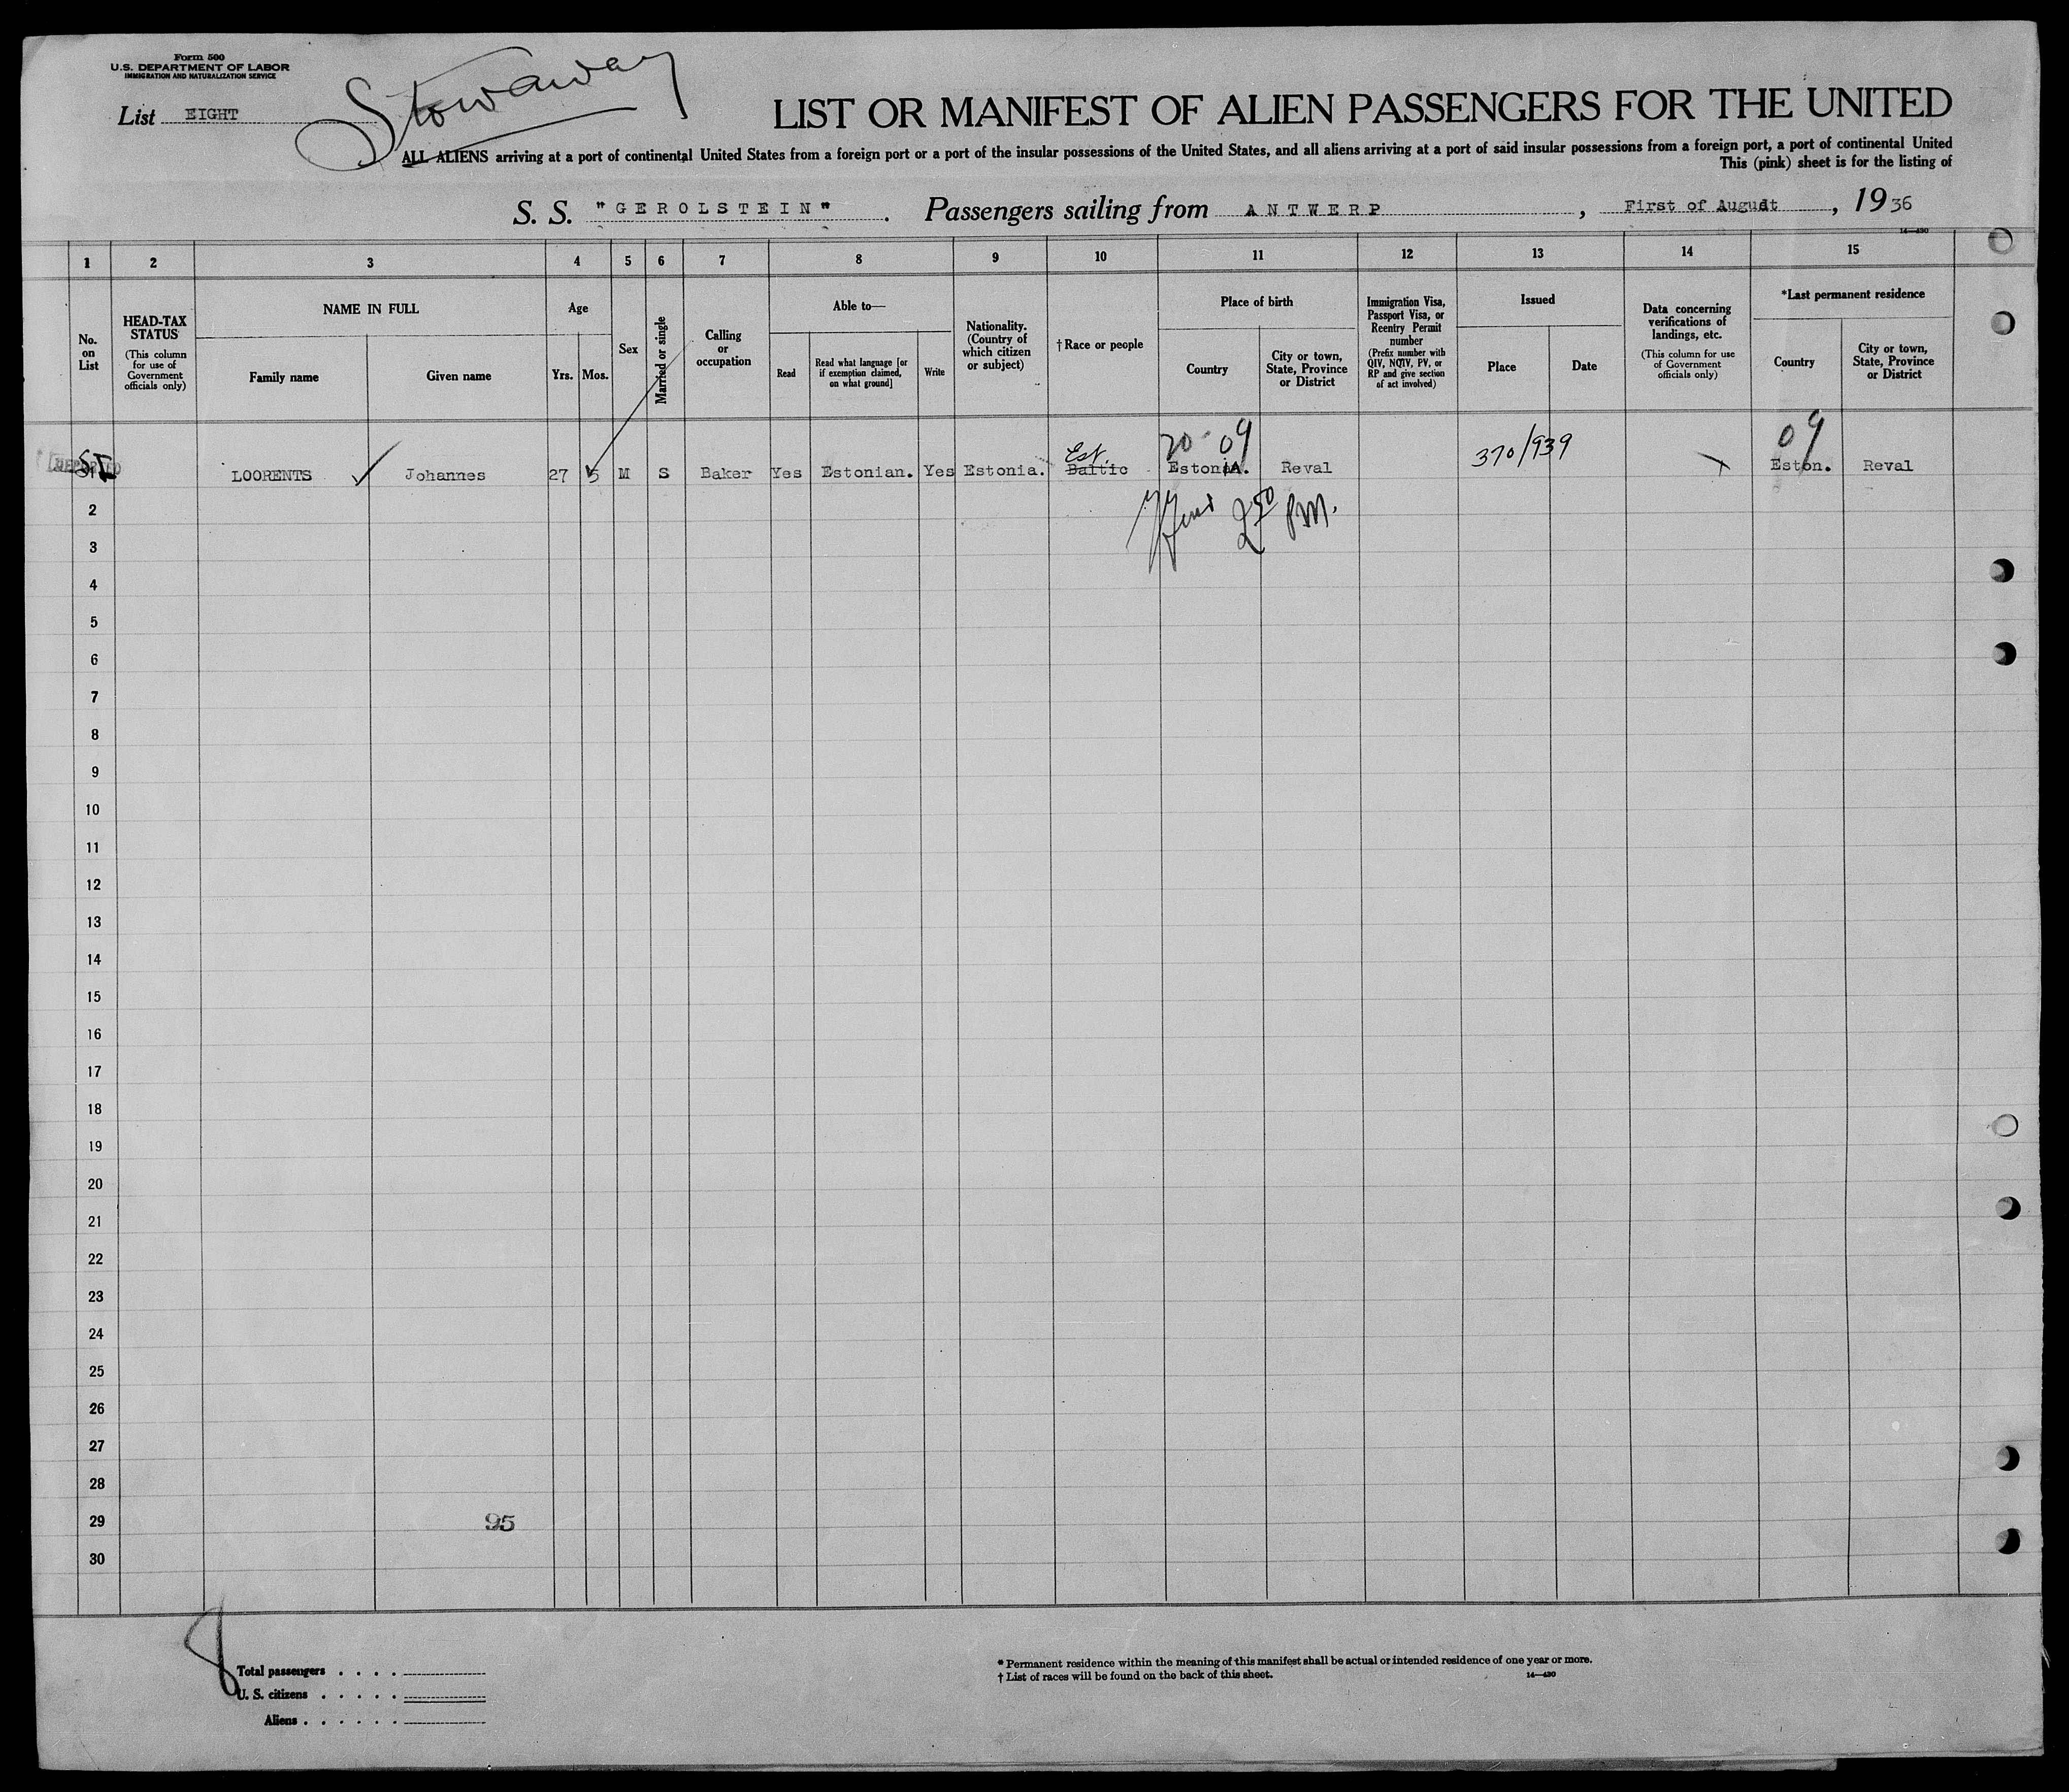 Form 500
U.S. DEPARTMENT OF LABOR
IMMIGRATION AND NATURALIZATION SERVICE
Stowaway
List EIGHT
LIST OR MANIFEST OF ALIEN PASSENGERS FOR THE UNITED
ALL ALIENS arriving at a port of continental United States from a foreign port or a port of the insular possessions of the United States, and all aliens arriving at a port of said insular possessions from a foreign port, a port of continental United
This (pink) sheet is for the listing of
S. S. "GEROLSTEIN". Passengers sailing from ANTWERP, First of August, 1936
14—430
1 2 3 4 5 6 7 8 9 10 11 12 13 14 15
No. on List
HEAD-TAX STATUS
(This column for use of Government officials only)
NAME IN FULL
Family name
Given name
Age
Yrs. Mos.
Sex
Married or single
Calling or occupation
Able to—
Read
Read what language [or if exemption claimed, on what ground]
Write
Nationality. (Country of which citizen or subject)
†Race or people
Place of birth
Country
City or town, State, Province or District
Immigration Visa, Passport Visa, or Reentry Permit number
(Prefix number with QIV, NQIV, PV, or RP and give section of act involved)
Issued
Place
Date
Data concerning verifications of landings, etc.
(This column for use of Government officials only)
*Last permanent residence
Country
City or town, State, Province or District
Est. 20 09 370/939 09
LOORENTS Johannes 27 5 M S Baker Yes Estonian. Yes Estonia. Baltic Estonia. Reval Eston. Reval
2 50 PM.
2
3
4
5
6
7
8
9
10
11
12
13
14
15
16
17
18
19
20
21
22
23
24
25
26
27
28
29 95
30
8
Total passengers
U. S. citizens
Aliens
* Permanent residence within the meaning of this manifest shall be actual or intended residence of one year or more.
† List of races will be found on the back of this sheet.
14—430